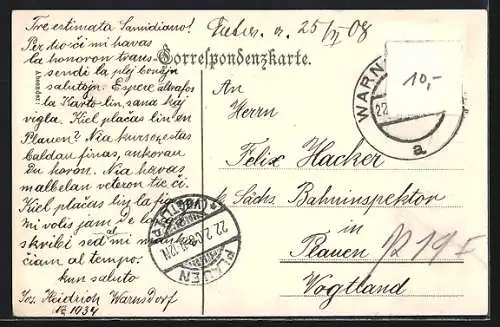 Tre estimata Samidiano!
Per tio ĉi mi havas
la honoron trans-
sendi la plej bonajn
salutojn. Espere atrafos
la karto lin, sana kaj
vigla. Kiel plaĉas lin en
Plauen? Nia kurso estas
baldau finas, ankorau
un horon. Nia havas
malbelan veteron tie ĉi.
Kiel plaĉas liz la
mi volis jam
skribi sed mi
ĉiam al tempo.
kun saluto
Jos. Heidrich Warnsdorf
No 1034
Absender:
25/II 08
Correspondenzkarte.
An
Herrn
Felix Hacker
k. Sächs. Bahninspektor
in
Plauen
Vogtland
WARN
22
a
10,-
PLAUEN
(VOGTL.)
22.2.08